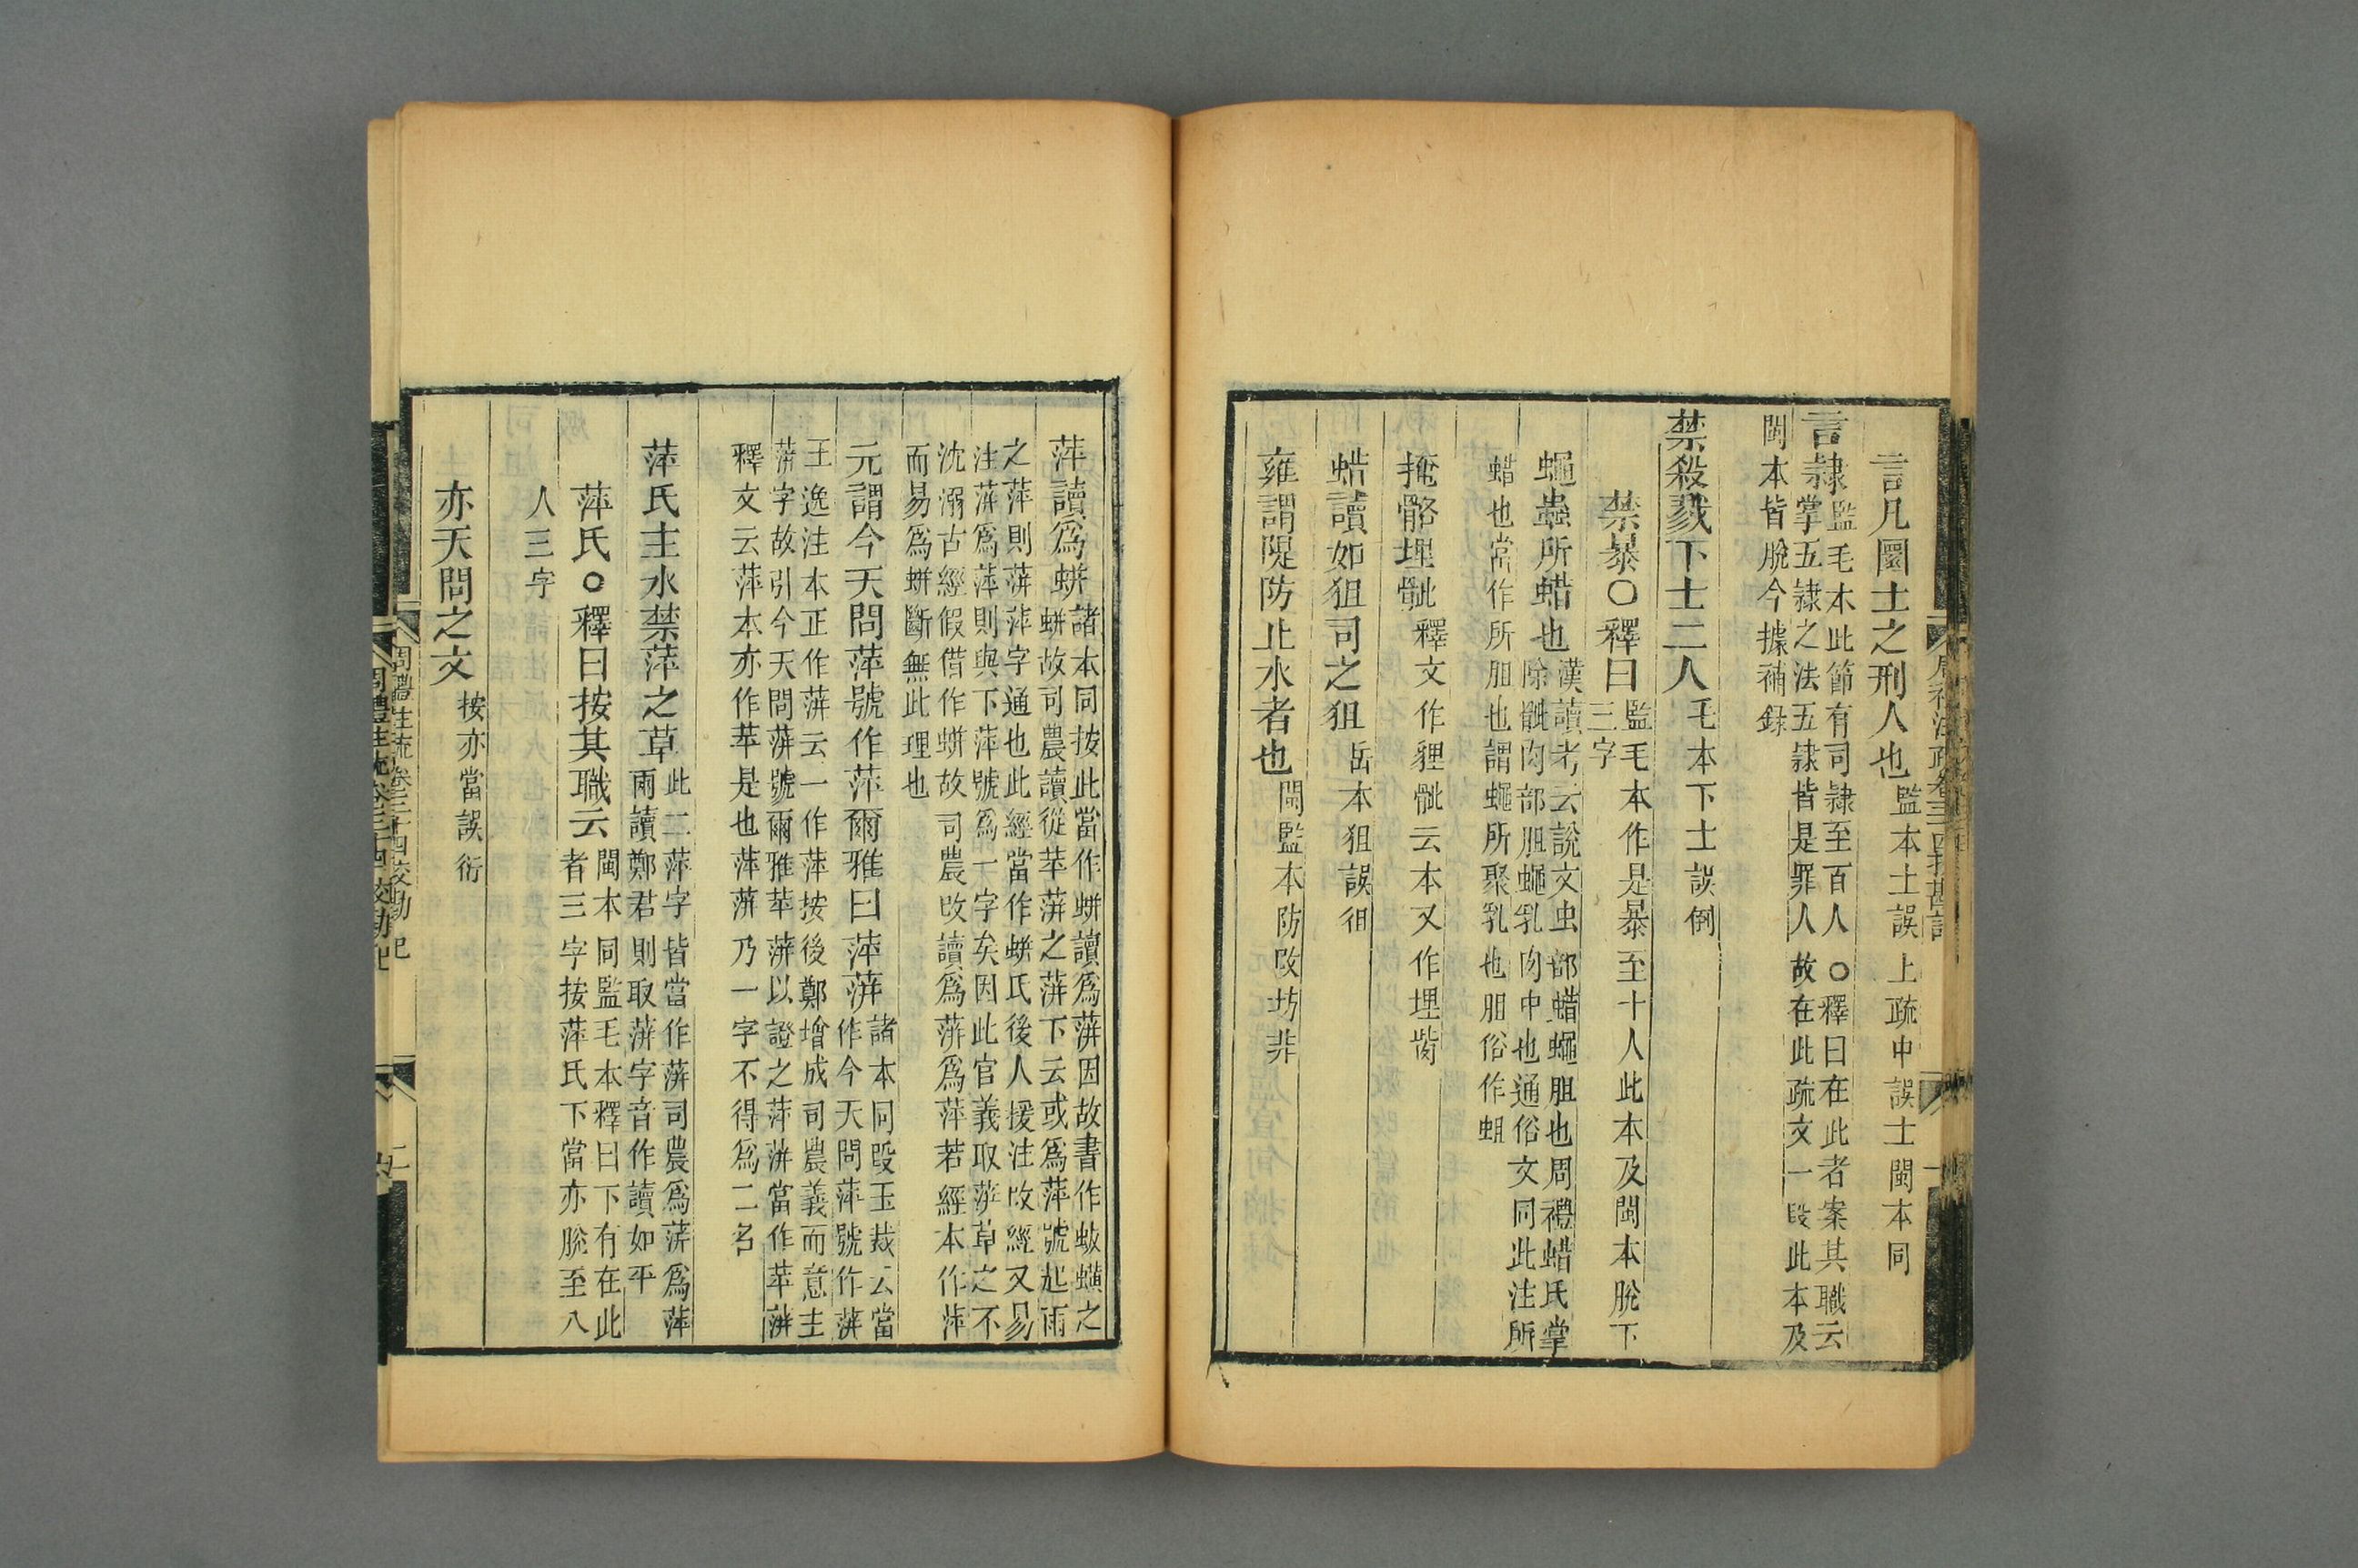 言凡圜土之刑人也監本土誤上疏中誤士閩本同
言隸監毛本此節有司隸至百人○釋曰在此者案其職云
掌五隸之法五隸皆是罪人故在此疏文一段此本及
閩本皆脫今據補錄
禁殺戮下士二人毛本下士誤倒
禁暴○釋曰監毛本作是暴至十人此本及閩本脫下
三字
蠅蟲所蜡也漢讀考云說文虫部蜡蠅胆也周禮蜡氏掌
除骴肉部胆蠅乳肉中也通俗文同此注所
蜡也當作所胆也謂蠅所聚乳也胆俗作蛆
掩骼埋骴釋文作貍骴云本又作埋胔
蜡讀如狙司之狙岳本狙誤徂
雍謂隄防止水者也閩監本防改坊非
萍讀爲蛢諸本同按此當作蛢讀爲蓱因故書作蛂蟥之
蛢故司農讀從苹蓱之蓱下云或爲萍號起雨
之萍則蓱萍字通也此經當作蛢氏後人援注改經又易
注蓱爲萍則與下萍號爲一字矣因此官義取萍草之不
沈溺古經假借作蛢故司農改讀爲蓱爲萍若經本作萍
而易爲蛢斷無此理也
元謂今天問萍號作萍爾雅曰萍蓱諸本同段玉裁云當
作今天問萍號作蓱
王逸注本正作蓱云一作萍按後鄭增成司農義而意主
蓱字故引今天問蓱號爾雅苹蓱以證之萍蓱當作苹蓱
釋文云萍本亦作苹是也萍蓱乃一字不得爲二名
萍氏主水禁萍之草此二萍字皆當作蓱司農爲蓱爲萍
雨讀鄭君則取蓱字音作讀如平
萍氏○釋曰按其職云閩本同監毛本釋曰下有在此
者三字按萍氏下當亦脫至八
人三字
亦天問之文按亦當誤衍
周禮注疏卷三十四校勘記
二